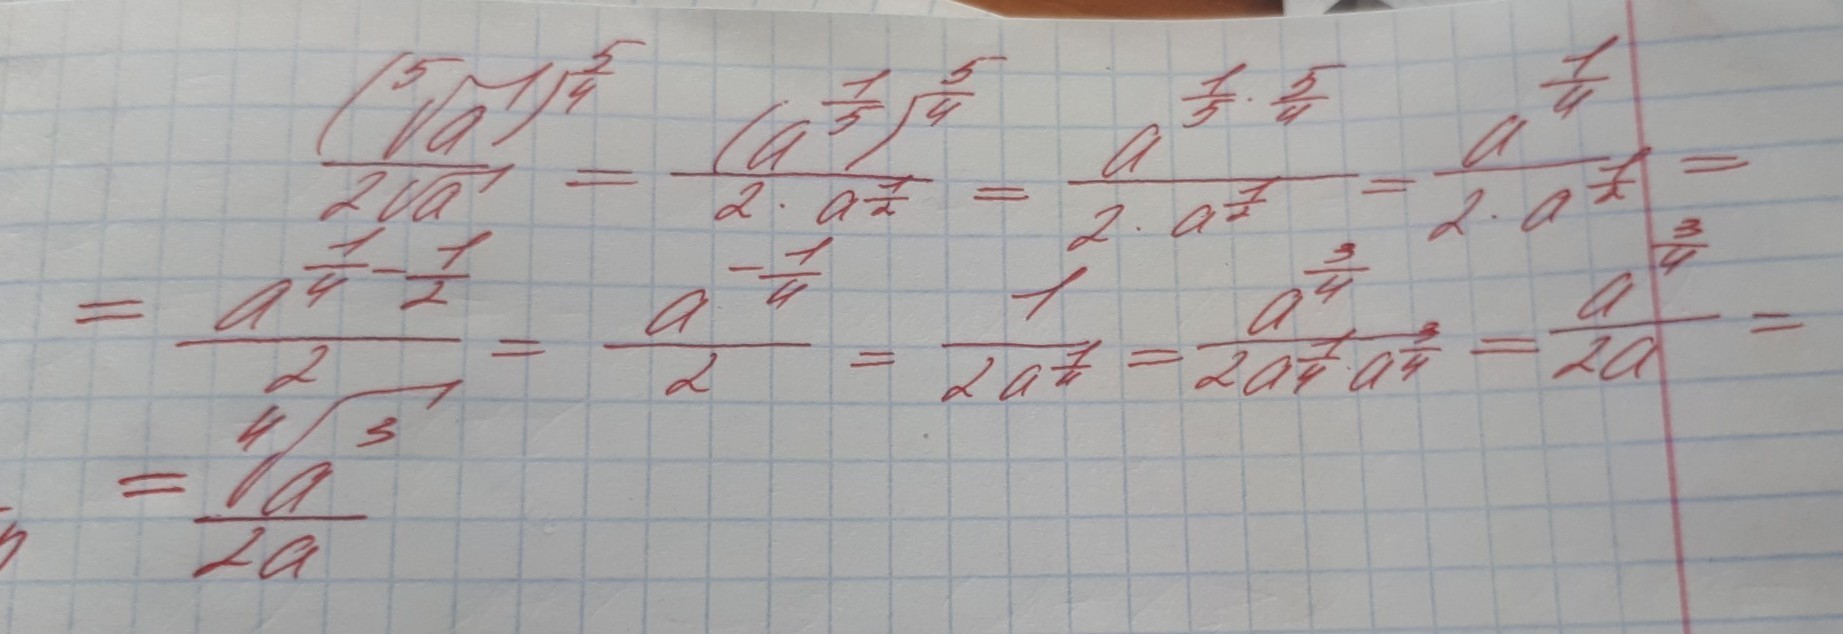 $\frac{(\sqrt[5]{a})^{\frac{5}{4}}}{2\sqrt{a}} = \frac{(a^{\frac{1}{5}})^{\frac{5}{4}}}{2 \cdot a^{\frac{1}{2}}} = \frac{a^{\frac{1}{5} \cdot \frac{5}{4}}}{2 \cdot a^{\frac{1}{2}}} = \frac{a^{\frac{1}{4}}}{2 \cdot a^{\frac{1}{2}}} =$
$= \frac{a^{\frac{1}{4} - \frac{1}{2}}}{2} = \frac{a^{-\frac{1}{4}}}{2} = \frac{1}{2a^{\frac{1}{4}}} = \frac{a^{\frac{3}{4}}}{2a^{\frac{1}{4}} \cdot a^{\frac{3}{4}}} = \frac{a^{\frac{3}{4}}}{2a} =$
$= \frac{\sqrt[4]{a^3}}{2a}$